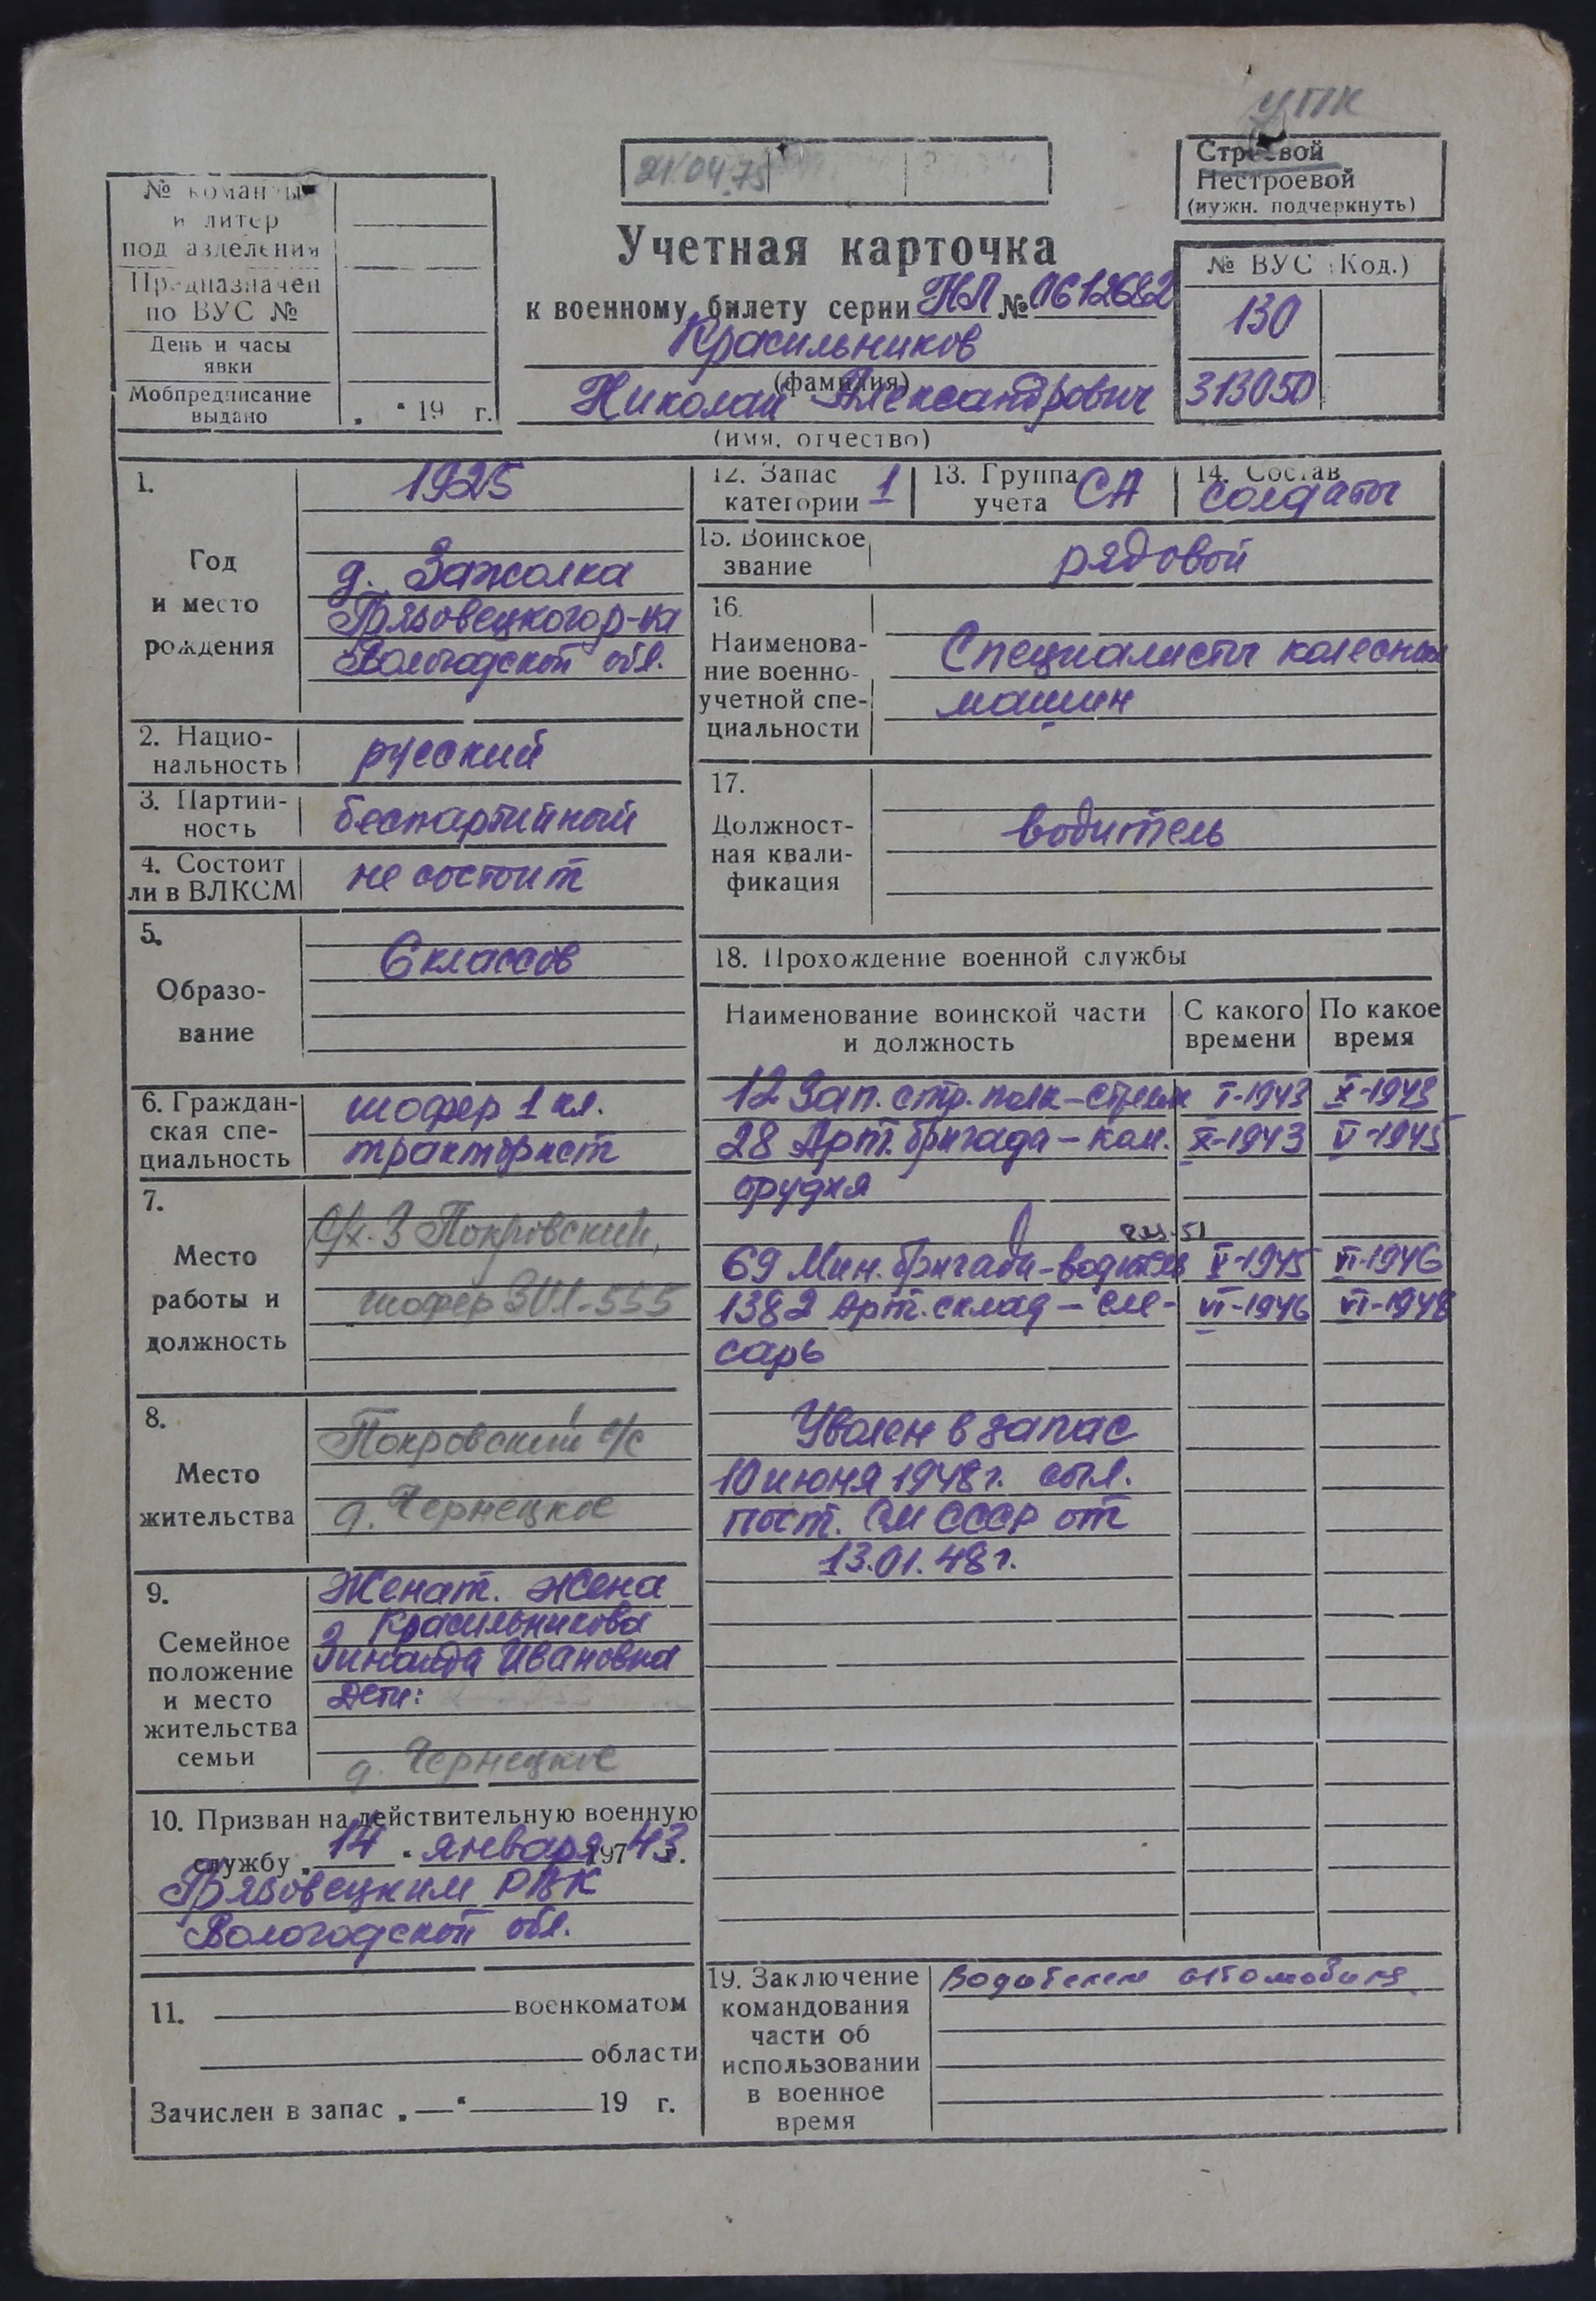 УПК
21.04.75
Строевой
Нестроевой
(нужн. подчеркнуть)
№ команды
и литер
подразделения
Предназначен
по ВУС №
День и часы
явки
Мобпредписание
выдано
„ “ 19 г.
Учетная карточка
к военному билету серии НЛ № 0612682
Красильников
(фамилия)
Николай Александрович
(имя, отчество)
№ ВУС (Код.)
130
313050
1.
Год
и место
рождения
1925
д. Зажолка
Грязовецкого р-на
Вологодской обл.
2. Нацио-
нальность
русский
3. Партий-
ность
беспартийный
4. Состоит
ли в ВЛКСМ
не состоит
5.
Образо-
вание
6 классов
6. Граждан-
ская спе-
циальность
шофер 1 кл.
тракторист
7.
Место
работы и
должность
С/х-З Покровский,
шофер ЗИЛ-555
8.
Место
жительства
Покровский с/с
д. Чернецкое
9.
Семейное
положение
и место
жительства
семьи
Женат. Жена
Красильникова
Зинаида Ивановна
Дети:
д. Чернецкое
10. Призван на действительную военную
службу „ 14 “ января 197 43 г.
Грязовецким РВК
Вологодской обл.
11. военкоматом
области
Зачислен в запас „ — “ 19 г.
12. Запас
категории 1
13. Группа
учета СА
14. Состав
солдаты
15. Воинское
звание
рядовой
16.
Наименова-
ние военно-
учетной спе-
циальности
Специалисты колесных
машин
17.
Должност-
ная квали-
фикация
водитель
18. Прохождение военной службы
Наименование воинской части
и должность
С какого
времени
По какое
время
12 Зап. стр. полк – стрелок I-1943 X-1943
28 Арт. бригада – ком. X-1943 V-1945
орудия
69 Мин. бригада – водитель V-1945 VI-1946
1382 Арт. склад – сле- VI-1946 VI-1948
сарь
Уволен в запас
10 июня 1948 г. согл.
пост. СМ СССР от
13.01.48 г.
19. Заключение
командования
части об
использовании
в военное
время
Водителем автомобиля